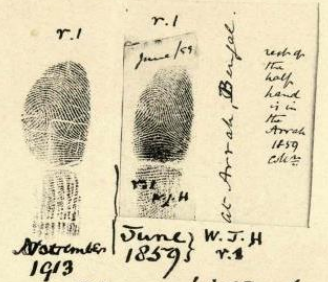 r.1
r.1
June/59
At Arrah, Bengal.
rest of
the
half
hand
is in
the
Arrah
1859
r.1
W.J.H
November
1913
June
1859
W.J.H
r.1